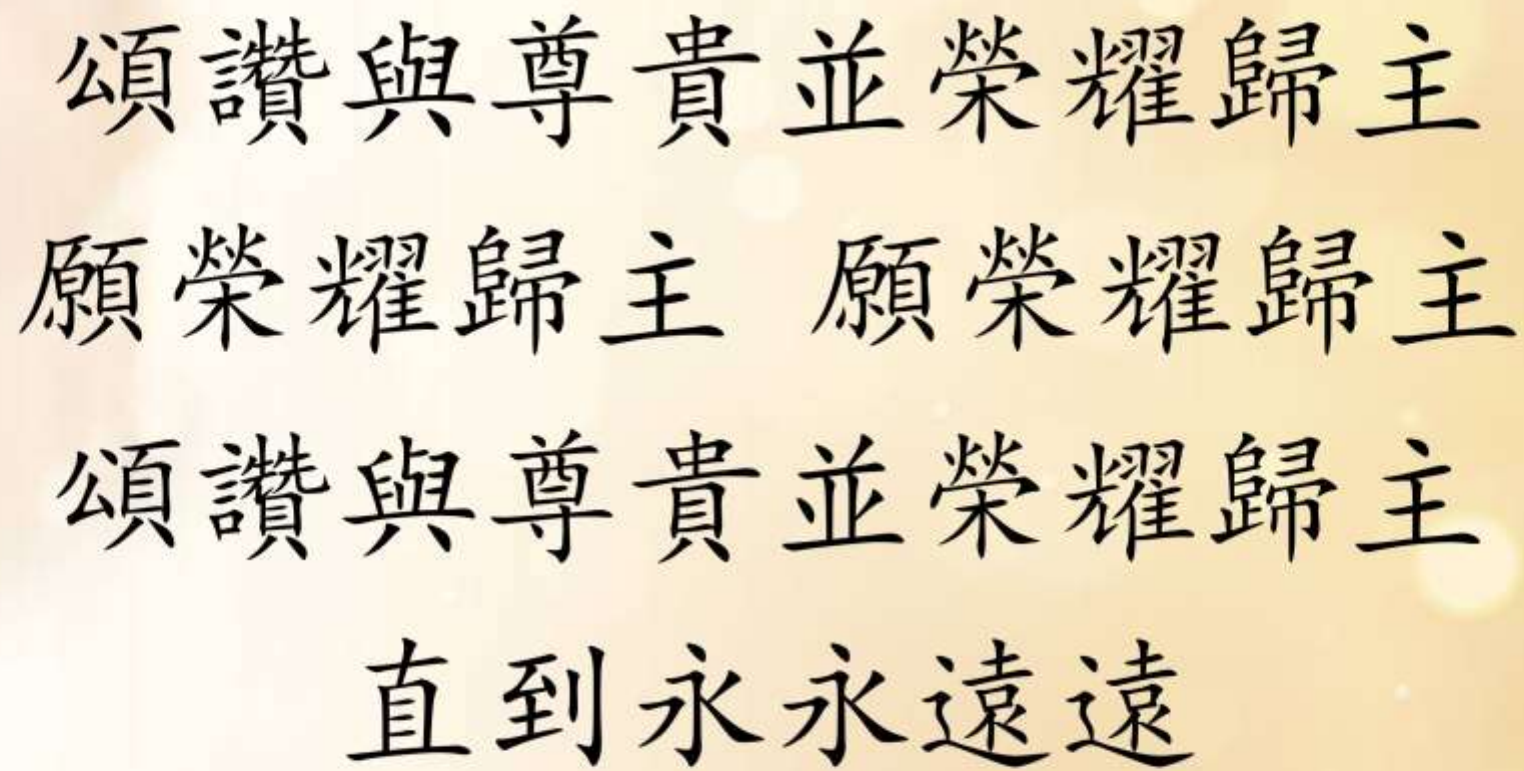 頌讚與尊貴並榮耀歸主
願榮耀歸主 願榮耀歸主
頌讚與尊貴並榮耀歸主
直到永永遠遠